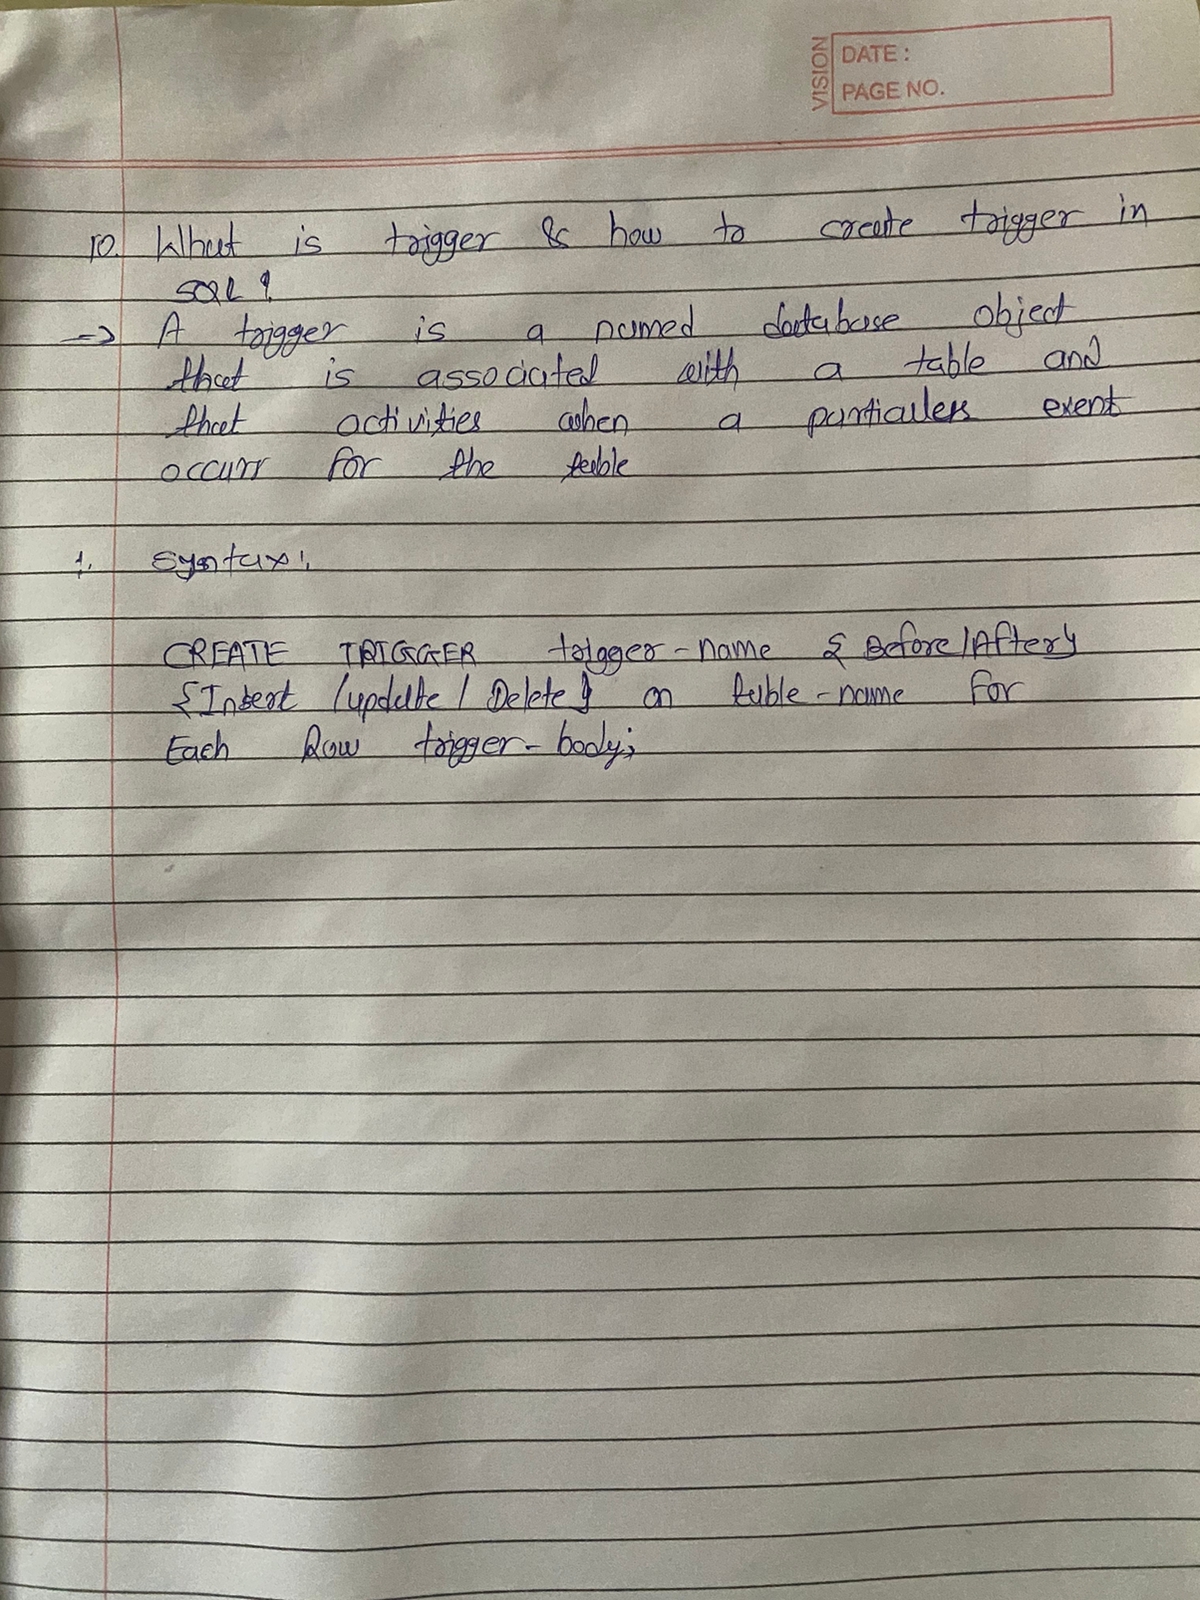 VISION
DATE :
PAGE NO.
10. What is trigger & how to create trigger in
SQL ?
-> A trigger is a named database object
that is associated with a table and
that activities when a particulers event
occurr for the table
1. Syntax:
CREATE TRIGGER trigger-name { Before/After}
{Insert /update / Delete} on table-name For
Each Row trigger-body;